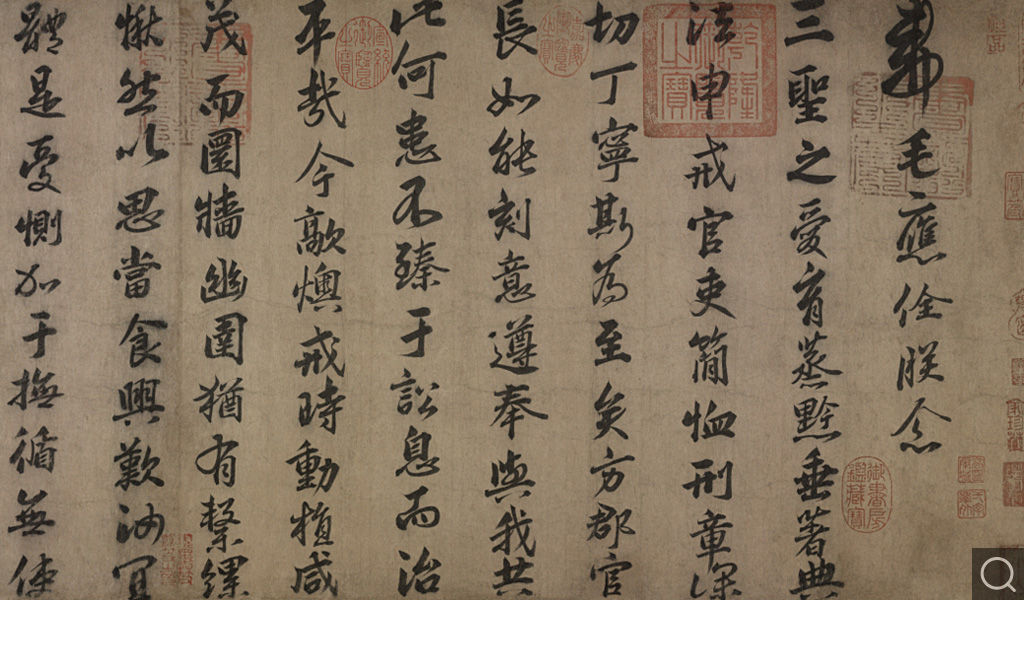 敕毛應佺朕念
三聖之愛育蒸黔垂著典
法申戒官吏簡恤刑章深
切丁寧斯為至矣方郡官
長如能刻意遵奉與我共
此何患不臻于訟息而治
平哉今歊燠戒時動植咸
茂而圜牆幽圄猶有繫縲
愀然以思當食興歎汝宜
體是憂惻加于撫循無使
乾隆御覽之寶
御書房鑑藏寶